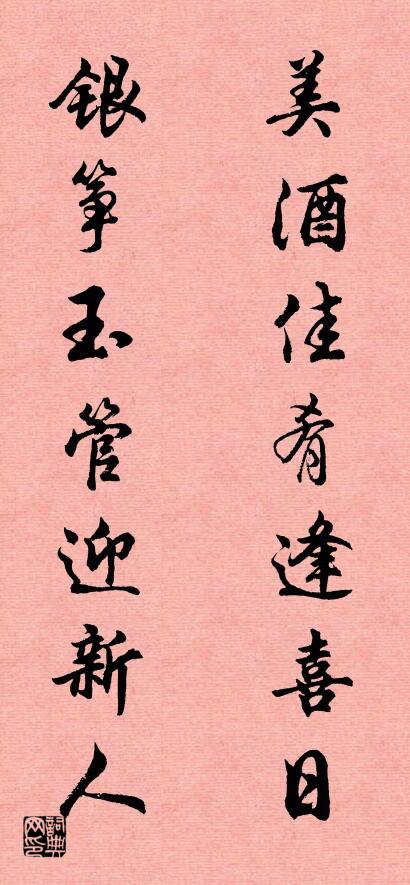 美酒佳肴逢喜日
银筝玉管迎新人
词典网印